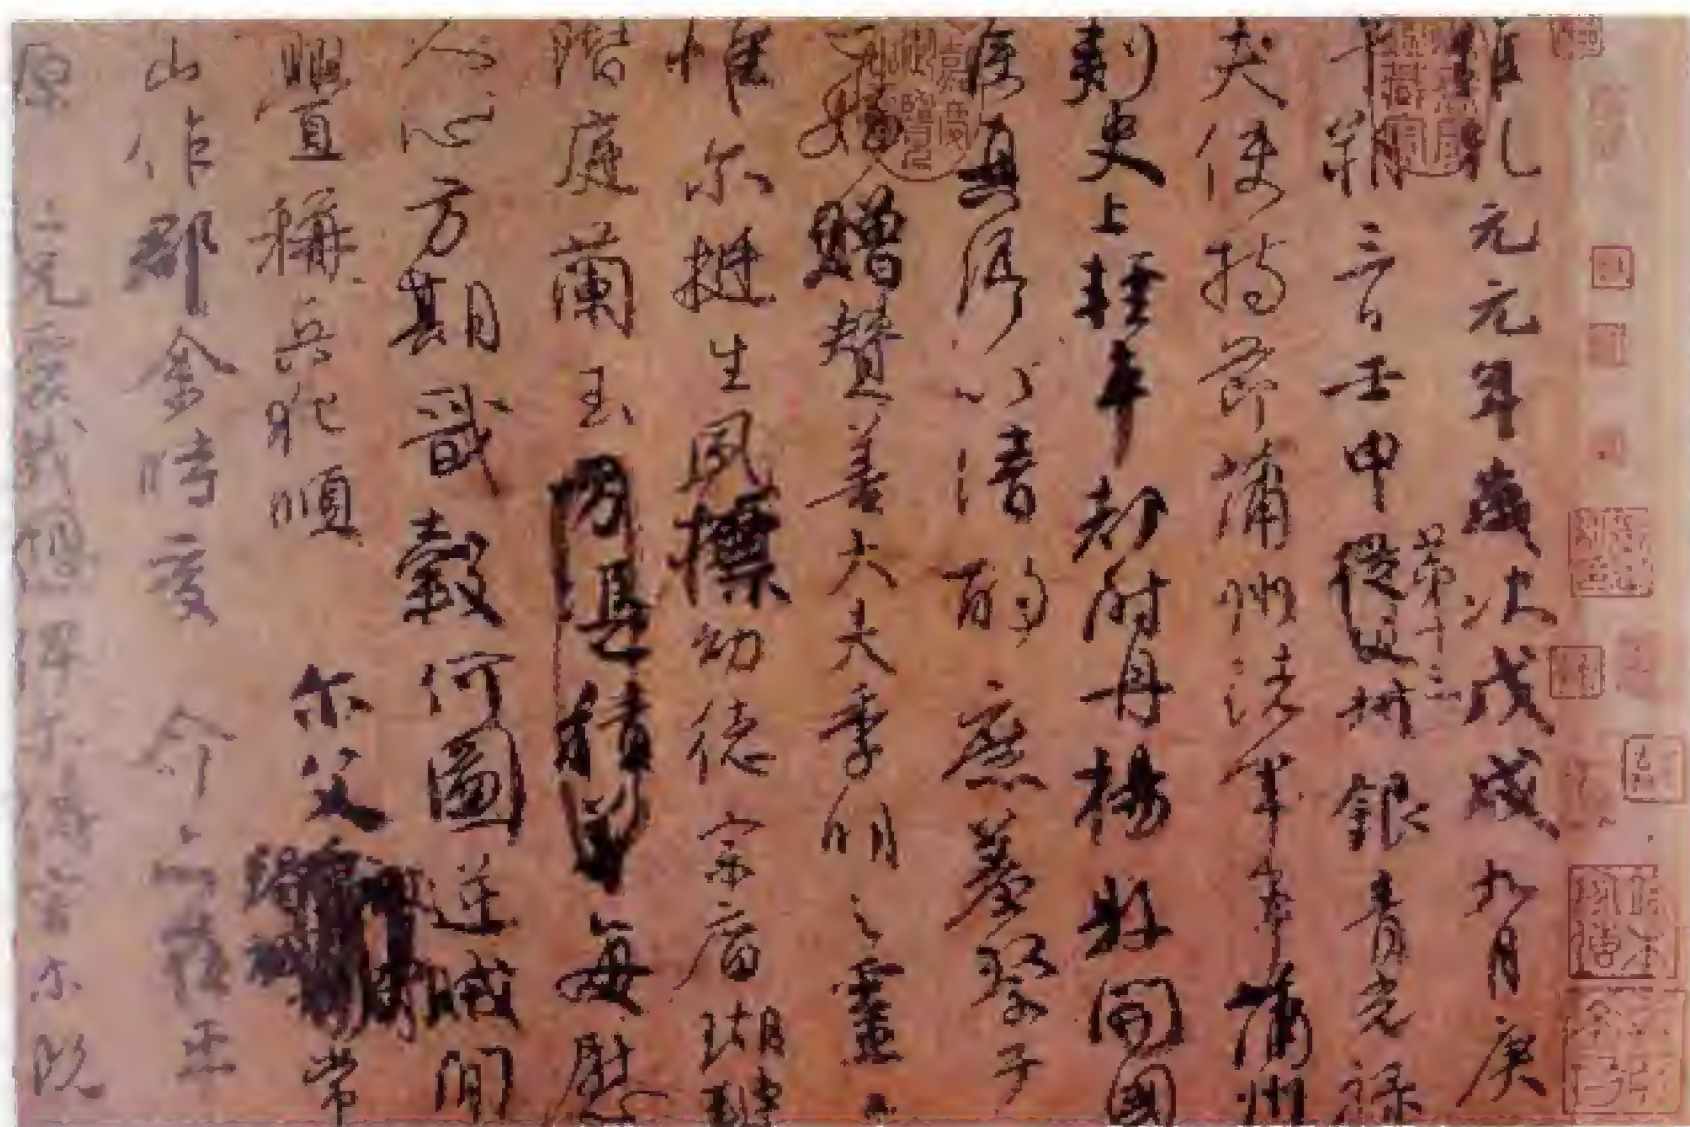 維乾元元年歲次戊戌九月庚
午朔三日壬申第十三從父銀青光祿
夫使持節蒲州諸軍事蒲州
刺史上輕車都尉丹楊縣開國
侯真卿以清酌庶羞祭于
亡姪贈贊善大夫季明之靈曰
惟尔挺生夙標幼德宗廟瑚璉
階庭蘭玉每慰
人心方期戩穀何圖逆賊閒
釁稱兵犯順 尔父常
山作郡余時受 命亦在平
原 仁兄愛我俾尔傳言尔既